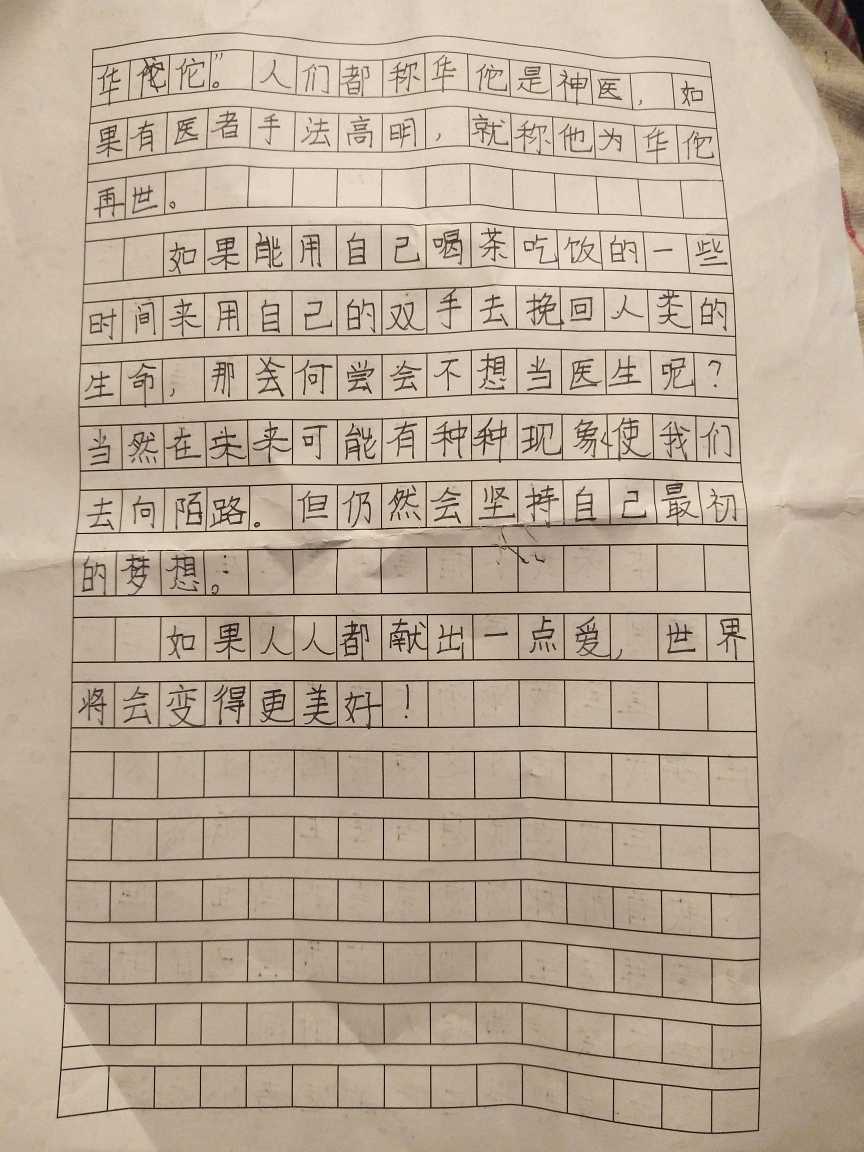 华佗佗。” 人们都称华佗是神医，如
果有医者手法高明，就称他为华佗
再世。
如果能用自己喝茶吃饭的一些
时间来用自己的双手去挽回人类的
生命，那会何尝会不想当医生呢？
当然在未来可能有种种现象使我们
去向陌路。但仍然会坚持自己最初
的梦想。
如果人人都献出一点爱，世界
将会变得更美好！